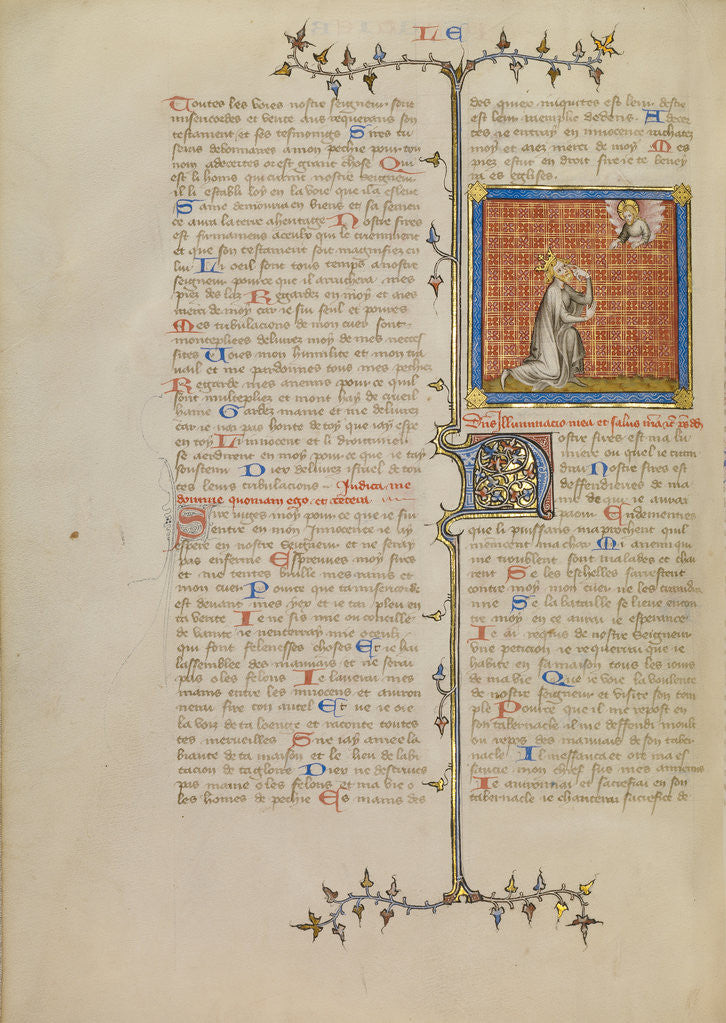 LE
Toutes les voies nostre seigneur sont
misericordes et verite aus requerans son
testament et ses tesmoings Sires tu
seras debonnaires a mon pechie pour ton
nom adecertes or est grant chose Qui
est li homs qui craint nostre seigneur
il li establi loy en la voie que il a esleue
Same demourra en biens et sa semen
ce aura la terre a heritage Nostre sires
est firmamens a ceulz qui le criement
et que son testament soit magnifiez en
lui Li oeil sont tous temps a nostre
seigneur pource que il arrachera mes
piez des laz Regardez en moy et aies
merci de moy car ie sui seul et poures
Mes tribulacions de mon cuer sont
montepliees delivrez moy de mes neces
sites Voies mon humilite et mon tra
vail et me pardonnes tous mes pechez
Regarde mes anemis pour ce quil
sont multipliez et mont hay de
haine Gardez mame et me delivrez
car ie nai pas honte de toy que iay espe
en toy Li innocent et li droiturier
se aerdirent en moy pour ce que ie tay
soustenu Diex delivrez israel de tou
tes leurs tribulacions Judica me
domine quoniam ego et cetera
Sire iuges moy pour ce que ie sui
entre en mon innocence ie ay
espere en nostre seigneur et ne seray
pas enferme Esprouves moy sires
et me temptes brulle mes rains et
mon cuer Pource que ta misericorde
est devant mes yex et ie tai pleu en
ta verite Ie ne sis mie ou concille
de vanite ie nenterray mie oceulz
qui font felonesses choses Et ie hai
lassemblee des mauvais et ne serai
pas o les felons Ie laverai mes
mains entre les innocens et auiron
nerai sire ton autel Et ie oie
la voiz de ta loenge et raconte toutes
tes merueilles Sire iay amee la
biaute de ta maison et le lieu de labi
tacion de ta gloire Diex ne destruies
pas mame o les felons et ma vie o
les homes de pechie Es mains des
des quiex iniquites est leur destre
est leur remplie de dons Adecer
tes ie entray en innocence rachatez
moy et aiez merci de moy Mes
piez estut en droit sire ie te beney
ra es eglises
Dns Illuminacio mea et salus
Nostre sires est ma lu
miere ou quel ie crain
drai Nostre sires est
deffenderres de ma
me de que ie aurai
paour Endementres
que li nuisans maprochent quil
menuicent ma char Mi anemi qui
me troublent sont malades et chai
rent Se les eschelles sarrestent
contre moy mon cuer ne les craindra
mie Se la bataille se lieue encon
tre moy en ce aurai ie esperance
Ie ai requis de nostre seigneur
vne peticion ie requerrai que ie
habite en sa maison tous les iours
de ma vie Que ie voie la voulente
de nostre seigneur et visite son tem
ple Pource que il me repost en
son tabernacle il me deffendi
ou repos des mauvais de son taber
nacle Il messauca et ore ma es
saucie mon chief sus mes anemis
Ie auironnai et sacrefiai en son
tabernacle ie chanterai sacrefice de